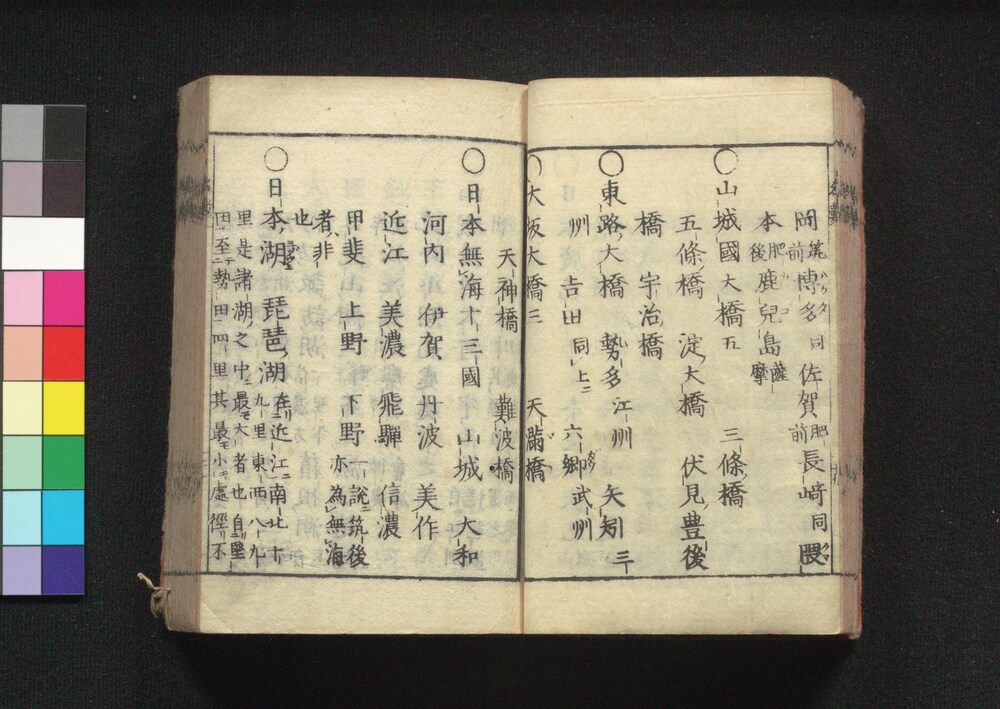 岡筑前 博多同 佐賀肥前 長崎同
本肥後 鹿兒島薩摩
〇山城國大橋五 三條橋
五條橋 淀大橋 伏見豊後
橋 宇治橋
〇東路大橋 勢多江州 矢矧三
州 吉田同上 六郷武州
〇大坂大橋三 天滿橋
天神橋 難波橋
〇日本無海十三國 山城 大和
河内 伊賀 丹波 美作
近江 美濃 飛騨 信濃
甲斐 上野 下野 亦為無海一説筑後
者非也
〇日本湖 琵琶湖在近江南北十
九里東西八九
里是諸湖之中最大者也自堅
田至勢田四里其最小處徑不